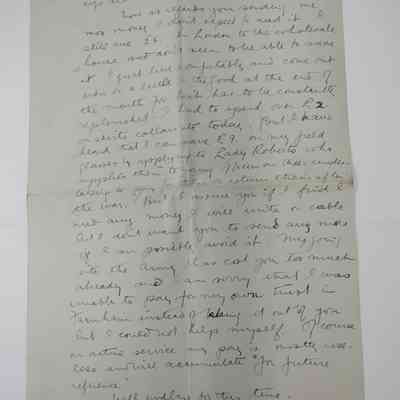 Now as regards your sending me
more money I don't expect to need it. I
still owe £6. in London to the wholesale
house and don't seem to be able to save
it. I just live comfortably and come out
even or a little to the good at the end of
the month for kit has to be constantly
replenished. I had to spend over £2
on shirts collars etc today. But I have
heard that I can save £9. on my field
glasses by applying to Lady Roberts who
supplies them to many
to return them after
the war. But I assure you if I find I
need any money I will write or cable
but I don't want you to send any more
if I can possibly avoid it. My going
into the Army has cost you too much
already and I am sorry that I was
unable to pay for my own
Farnham instead of taking it out of you
but I could not help myself. Of course
on active service my pay is mostly use-
less and will accumulate "for future
reference".
Well goodbye for this time.